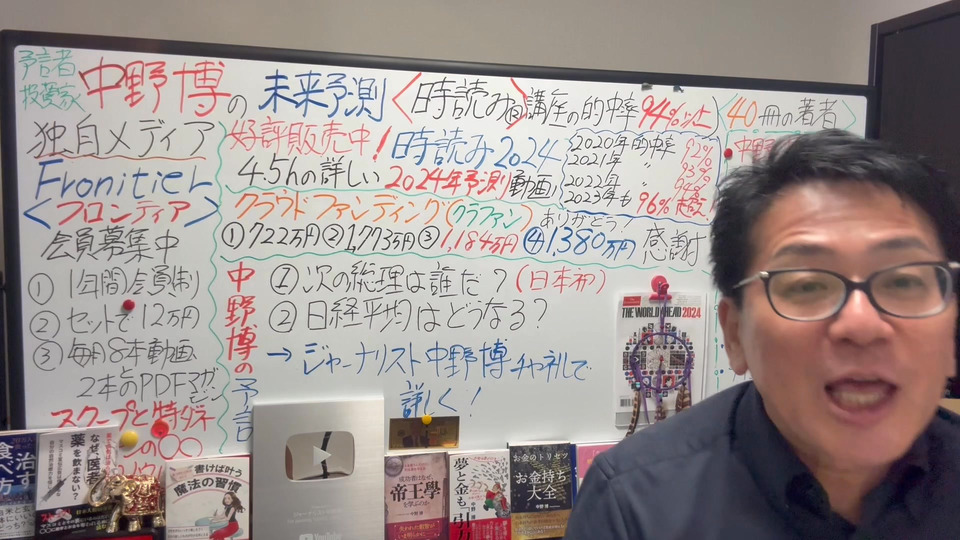 予言者
投資家
中野博の未来予測〈時読み®講座の的中率94%以上
40冊の著者
独自メディア
Fronitier
<フロンティア>
会員募集中
① 1年間会員制
② セットで12万円
③ 毎月8本動画
2本とのPDFマガジン
スクープと特ダネ
好評販売中！時読み2024
4.5hの詳しい2024年予測動画！
2020年的中率 92%
2021年 〃 93%
2022年 〃 94%
2023年も 96%
クラウドファンディング(クラファン)ありがとう！
①722万円②1,773万円③1,184万円④1,380万円 感謝
中野博の予言
①次の総理は誰だ？(日本初)
②日経平均はどうなる？
→ジャーナリスト中野博チャンネルで
詳しく！
THE WORLD AHEAD 2024
治す
食べ方
なぜ、医者は
薬を飲まない？
書けば叶う
魔法の習慣
YouTube
成功者はなぜ
帝王學
を学ぶのか
中野 博
夢と金も
お金のトリセツ
お金持ち
大全
中野 博